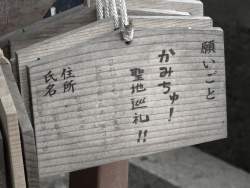 願いごと
かみちゅ!
聖地巡礼!!
住所
氏名